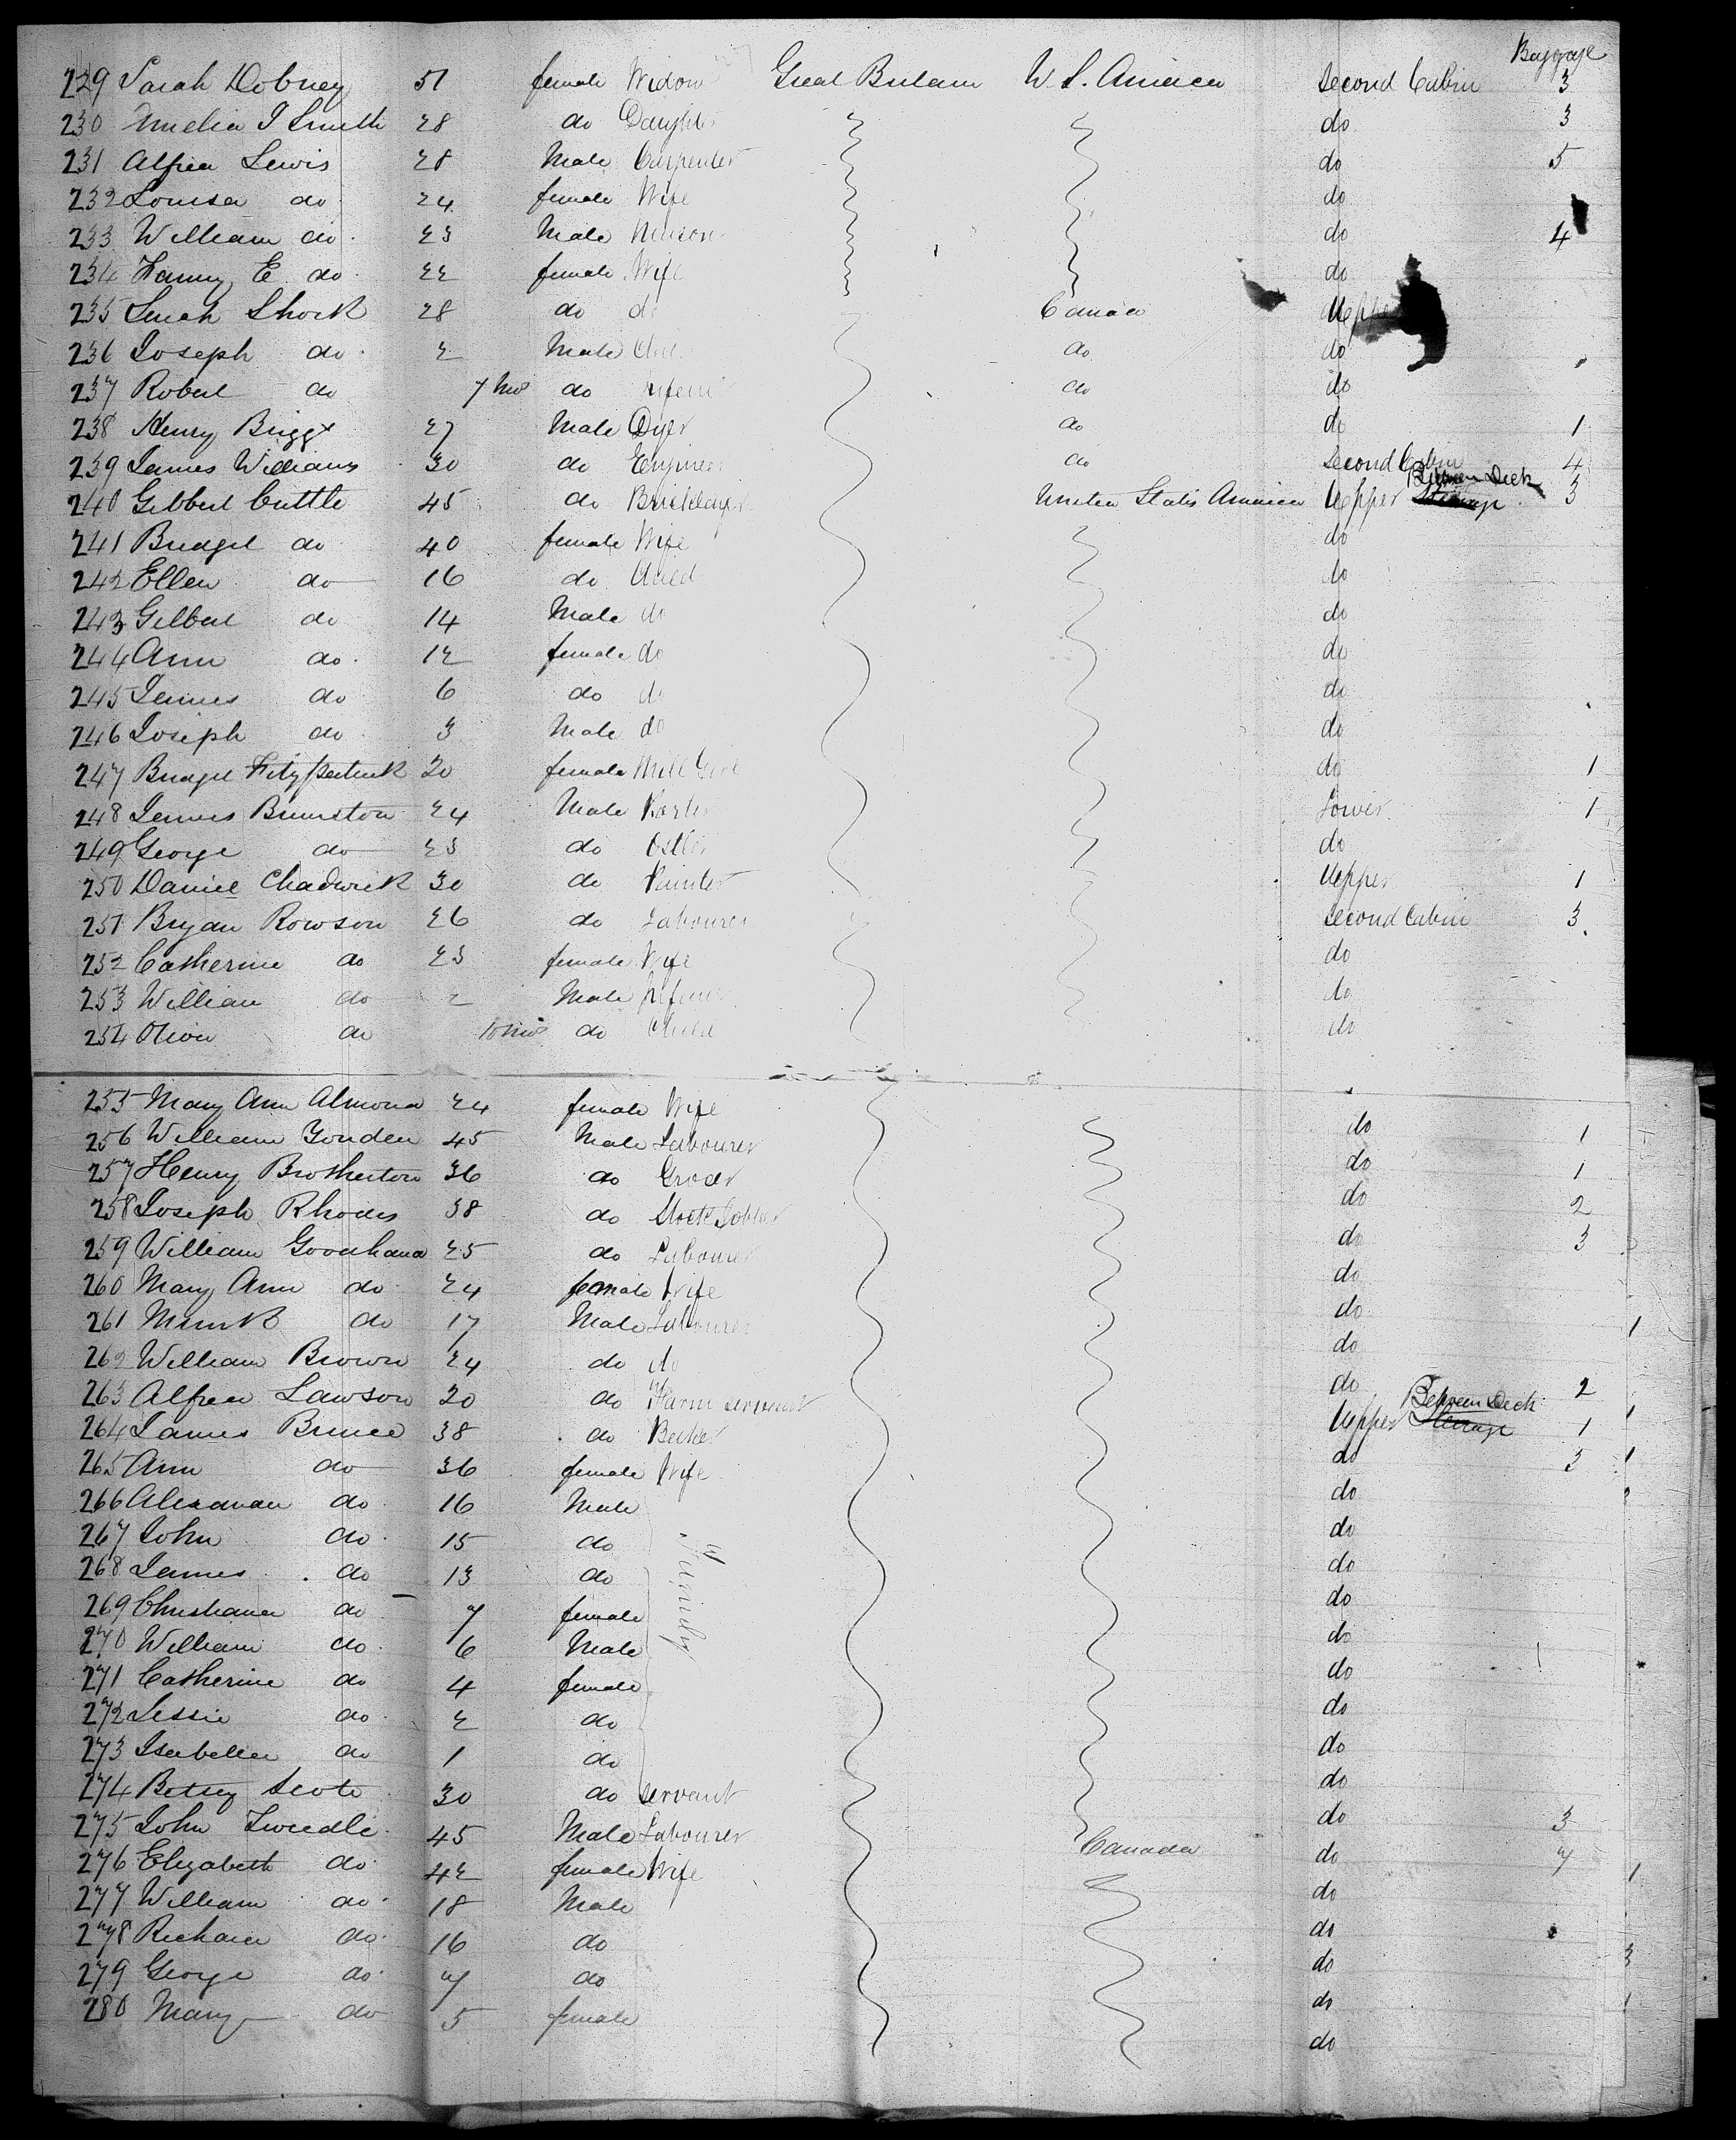 Baggage
229 Sarah Dobney 51 female Widow Great Britain U. S. America Second Cabin 3
230 Amelia J Smith 28 do Daughter do 3
231 Alfred Lewis 28 Male Carpenter do 5
232 Louisa do 24 female Wife do
233 William do 23 Male Mason do 4
234 Fanny E. do 22 female Wife do
235 Sarah Shork 28 do do Canada Upper
236 Joseph do 2 Male Child do do
237 Robert do 7 Mos do Infant do do
238 Henry Briggs 27 Male Dyer do do 1
239 James Williams 30 do Engineer do Second Cabin 4
240 Gilbert Cuttle 45 do Bricklayer United States America Upper Steerage Between Deck 3
241 Bridget do 40 female Wife do
242 Ellen do 16 do Child do
243 Gilbert do 14 Male do do
244 Ann do 12 female do do
245 James do 6 do do do
246 Joseph do 3 Male do do
247 Bridget Fitzpatrick 20 female Mill Girl do 1
248 James Brunston 24 Male Porter Lower 1
249 George do 23 do Ostler do
250 Daniel Chadwick 30 do Painter Upper 1
251 Bryan Rowson 26 do Labourer Second Cabin 3
252 Catherine do 23 female Wife do
253 William do 2 Male Infant do
254 Oliver do 10 mos do Child do
255 Mary Ann Almond 24 female Wife do 1
256 William Gouden 45 Male Labourer do 1
257 Henry Brotherton 36 do Grocer do 2
258 Joseph Rhodes 38 do Stock Jobber do 3
259 William Goodhand 25 do Labourer do
260 Mary Ann do 24 female Wife do
261 do 17 Male Labourer do
262 William Brown 24 do do do 2
263 Alfred Lawson 20 do Farm servant Upper Steerage Between Deck 1
264 James Bruce 38 do Baker do 3
265 Ann do 36 female Wife do
266 Alexander do 16 Male do
267 John do 15 do Family do
268 James do 13 do do
269 Christiana do 7 female do
270 William do 6 Male do
271 Catherine do 4 female do
272 Jessie do 2 do do
273 Isabella do 1 do do
274 Betsey Scott 30 do Servant do 3
275 John Tweedle 45 Male Labourer Canada do 7
276 Elizabeth do 42 female Wife do
277 William do 18 Male do
278 Richard do 16 do do
279 George do 7 do do
280 Mary do 5 female do